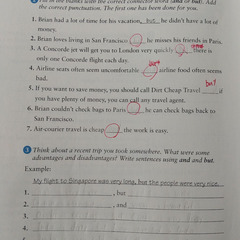 Fill in the blanks with the correct connector word (and or but). Add the
correct punctuation. The first one has been done for you.
1. Brian had a lot of time for his vacation, but he didn't have a lot of
money.
2. Brian loves living in San Francisco he misses his friends in Paris.
3. A Concorde jet will get you to London very quickly there is
only one Concorde flight each day.
4. Airline seats often seem uncomfortable airline food often seems
bad.
5. If you want to save money, you should call Dirt Cheap Travel if
but
you have plenty of money, you can call any travel agent.
6. Brian couldn't check bags to Paris he can check bags back to
San Francisco.
7. Air-courier travel is cheap the work is easy.
3 Think about a recent trip you took somewhere. What were some
advantages and disadvantages? Write sentences using and and but.
Example:
My flight to Singapore was very long, but the people were very nice.
1. , but
2. , and
3.
4.